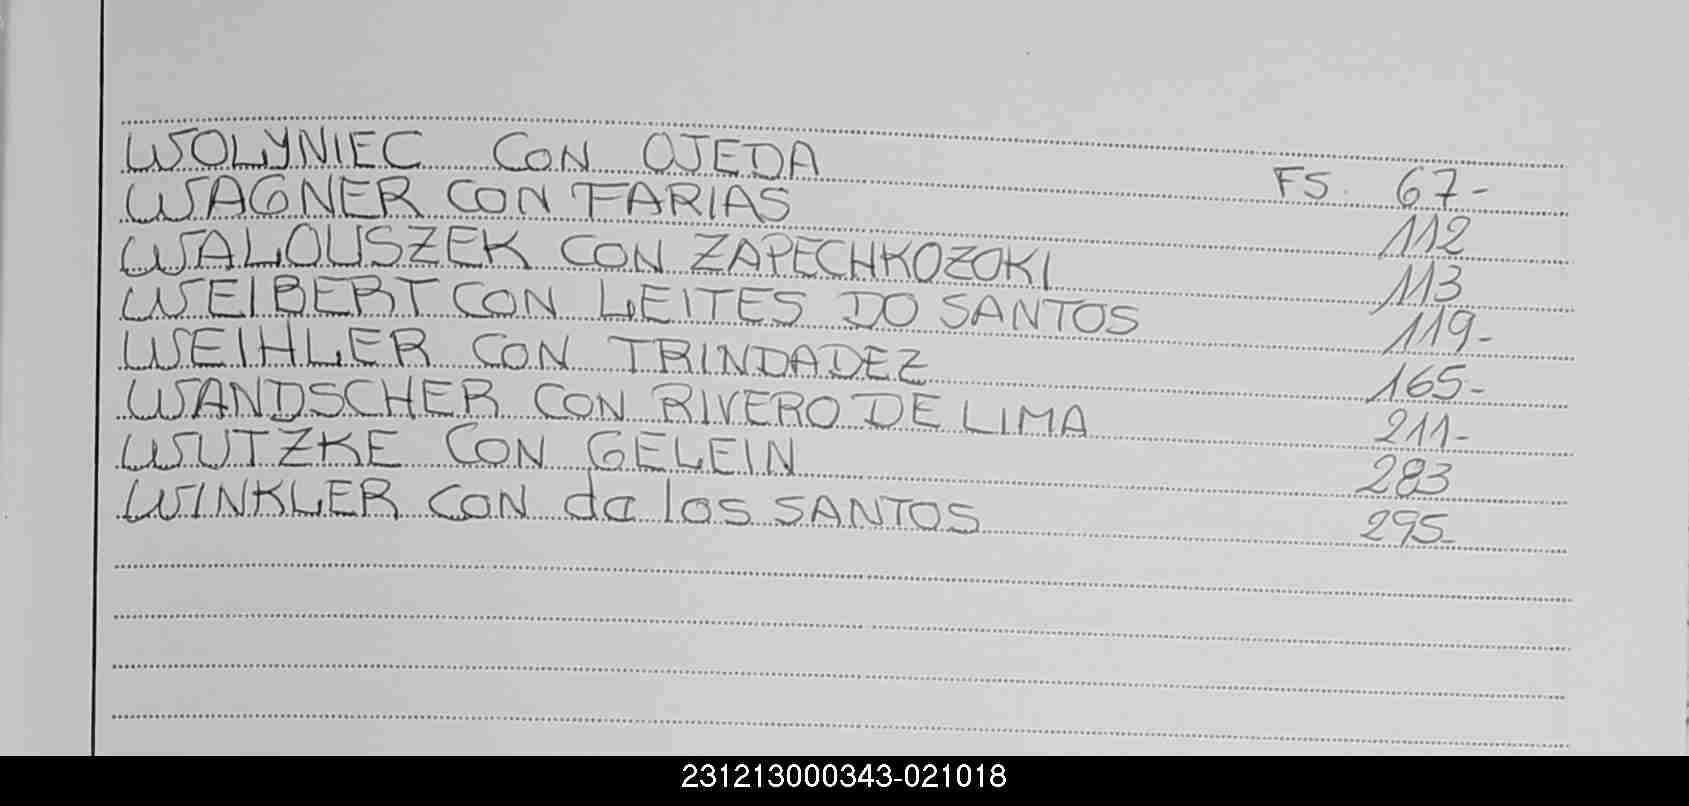 WOLYNIEC CON OJEDA FS. 67-
WAGNER CON FARIAS 112
WALOUSZEK CON ZAPECHKOZOKI 113
WEIBERT CON LEITES DO SANTOS 119-
WEIHLER CON TRINDADEZ 165-
WANDSCHER CON RIVERO DE LIMA 211-
WUTZKE CON GELEIN 283
WINKLER CON da los SANTOS 295-
231213000343-021018